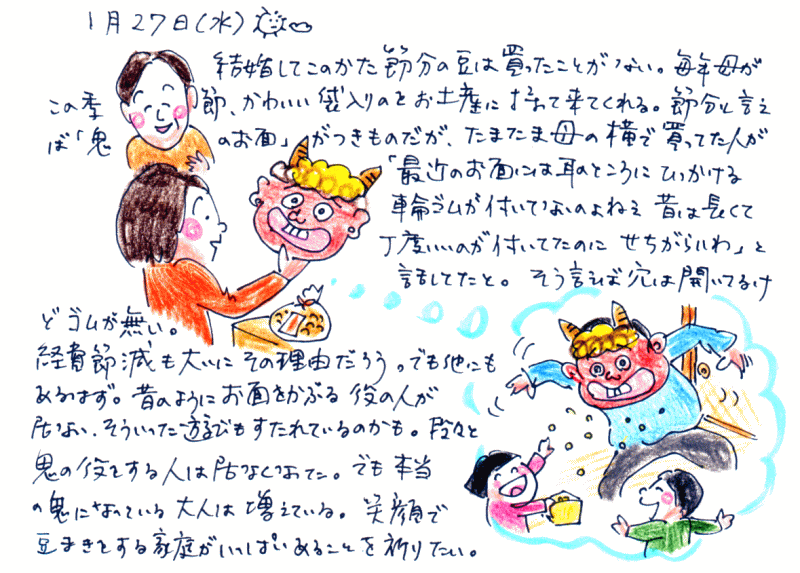 1月27日(水)
結婚してこのかた節分の豆は買ったことがない。毎年母が
この季節、かわいい袋入りのをお土産に持って来てくれる。節分と言え
ば「鬼のお面」がつきものだが、たまたま母の横で買ってた人が
「最近のお面には耳のところにひっかける
輪ゴムが付いていないのよねえ 昔は長くて
丁度いいのが付いてたのに せちがらいわ」と
話してたと。そう言えば穴は開いてるけ
どゴムが無い。
経費節減も大いにその理由だろう。でも他にも
あるはず。昔のようにお面をかぶる役の人が
居ない、そういった遊びもすたれているのかも。段々と
鬼の役をする人は居なくなった。でも本当
の鬼になっている大人は増えている。笑顔で
豆まきをする家庭がいっぱいあることを祈りたい。